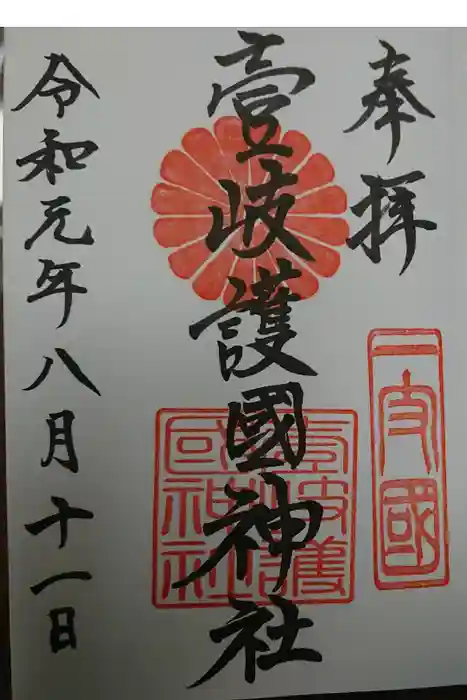 奉拝
一支國
壹岐護國神社
壹岐護國神社
令和元年八月十一日